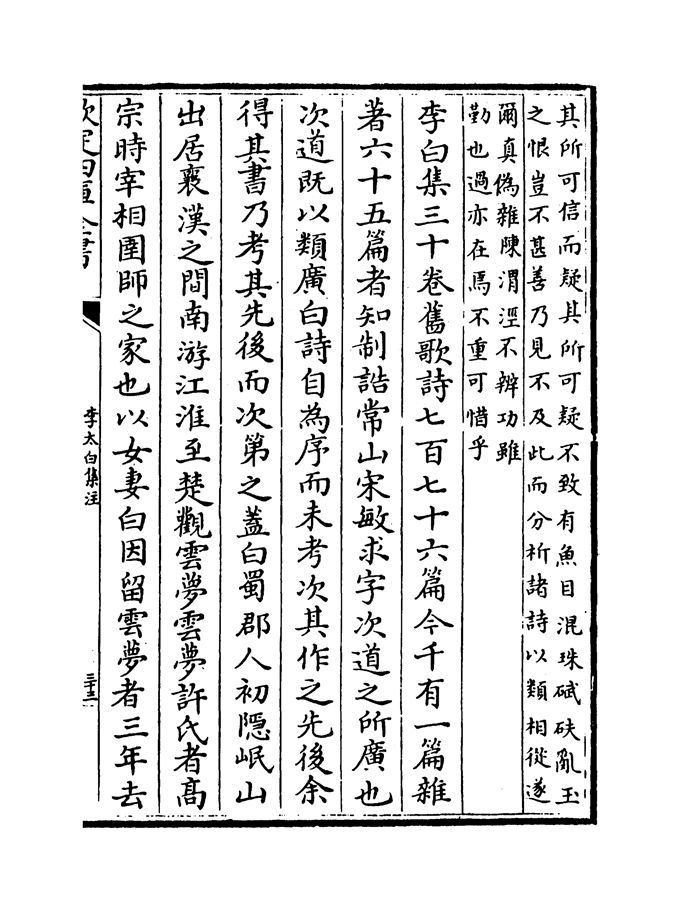 其所可信而疑其所可疑不致有魚目混珠碔砆亂玉
之恨豈不甚善乃見不及此而分析諸詩以類相從遂
爾真偽雜陳渭涇不辨功雖
勤也過亦在焉不重可惜乎
李白集三十卷舊歌詩七百七十六篇今千有一篇雜
著六十五篇者知制誥常山宋敏求字次道之所廣也
次道既以類廣白詩自為序而未考次其作之先後余
得其書乃考其先後而次第之蓋白蜀郡人初隱岷山
出居襄漢之間南游江淮至楚觀雲夢雲夢許氏者高
宗時宰相圉師之家也以女妻白因留雲夢者三年去
欽定四庫全書
李太白集注
三十三